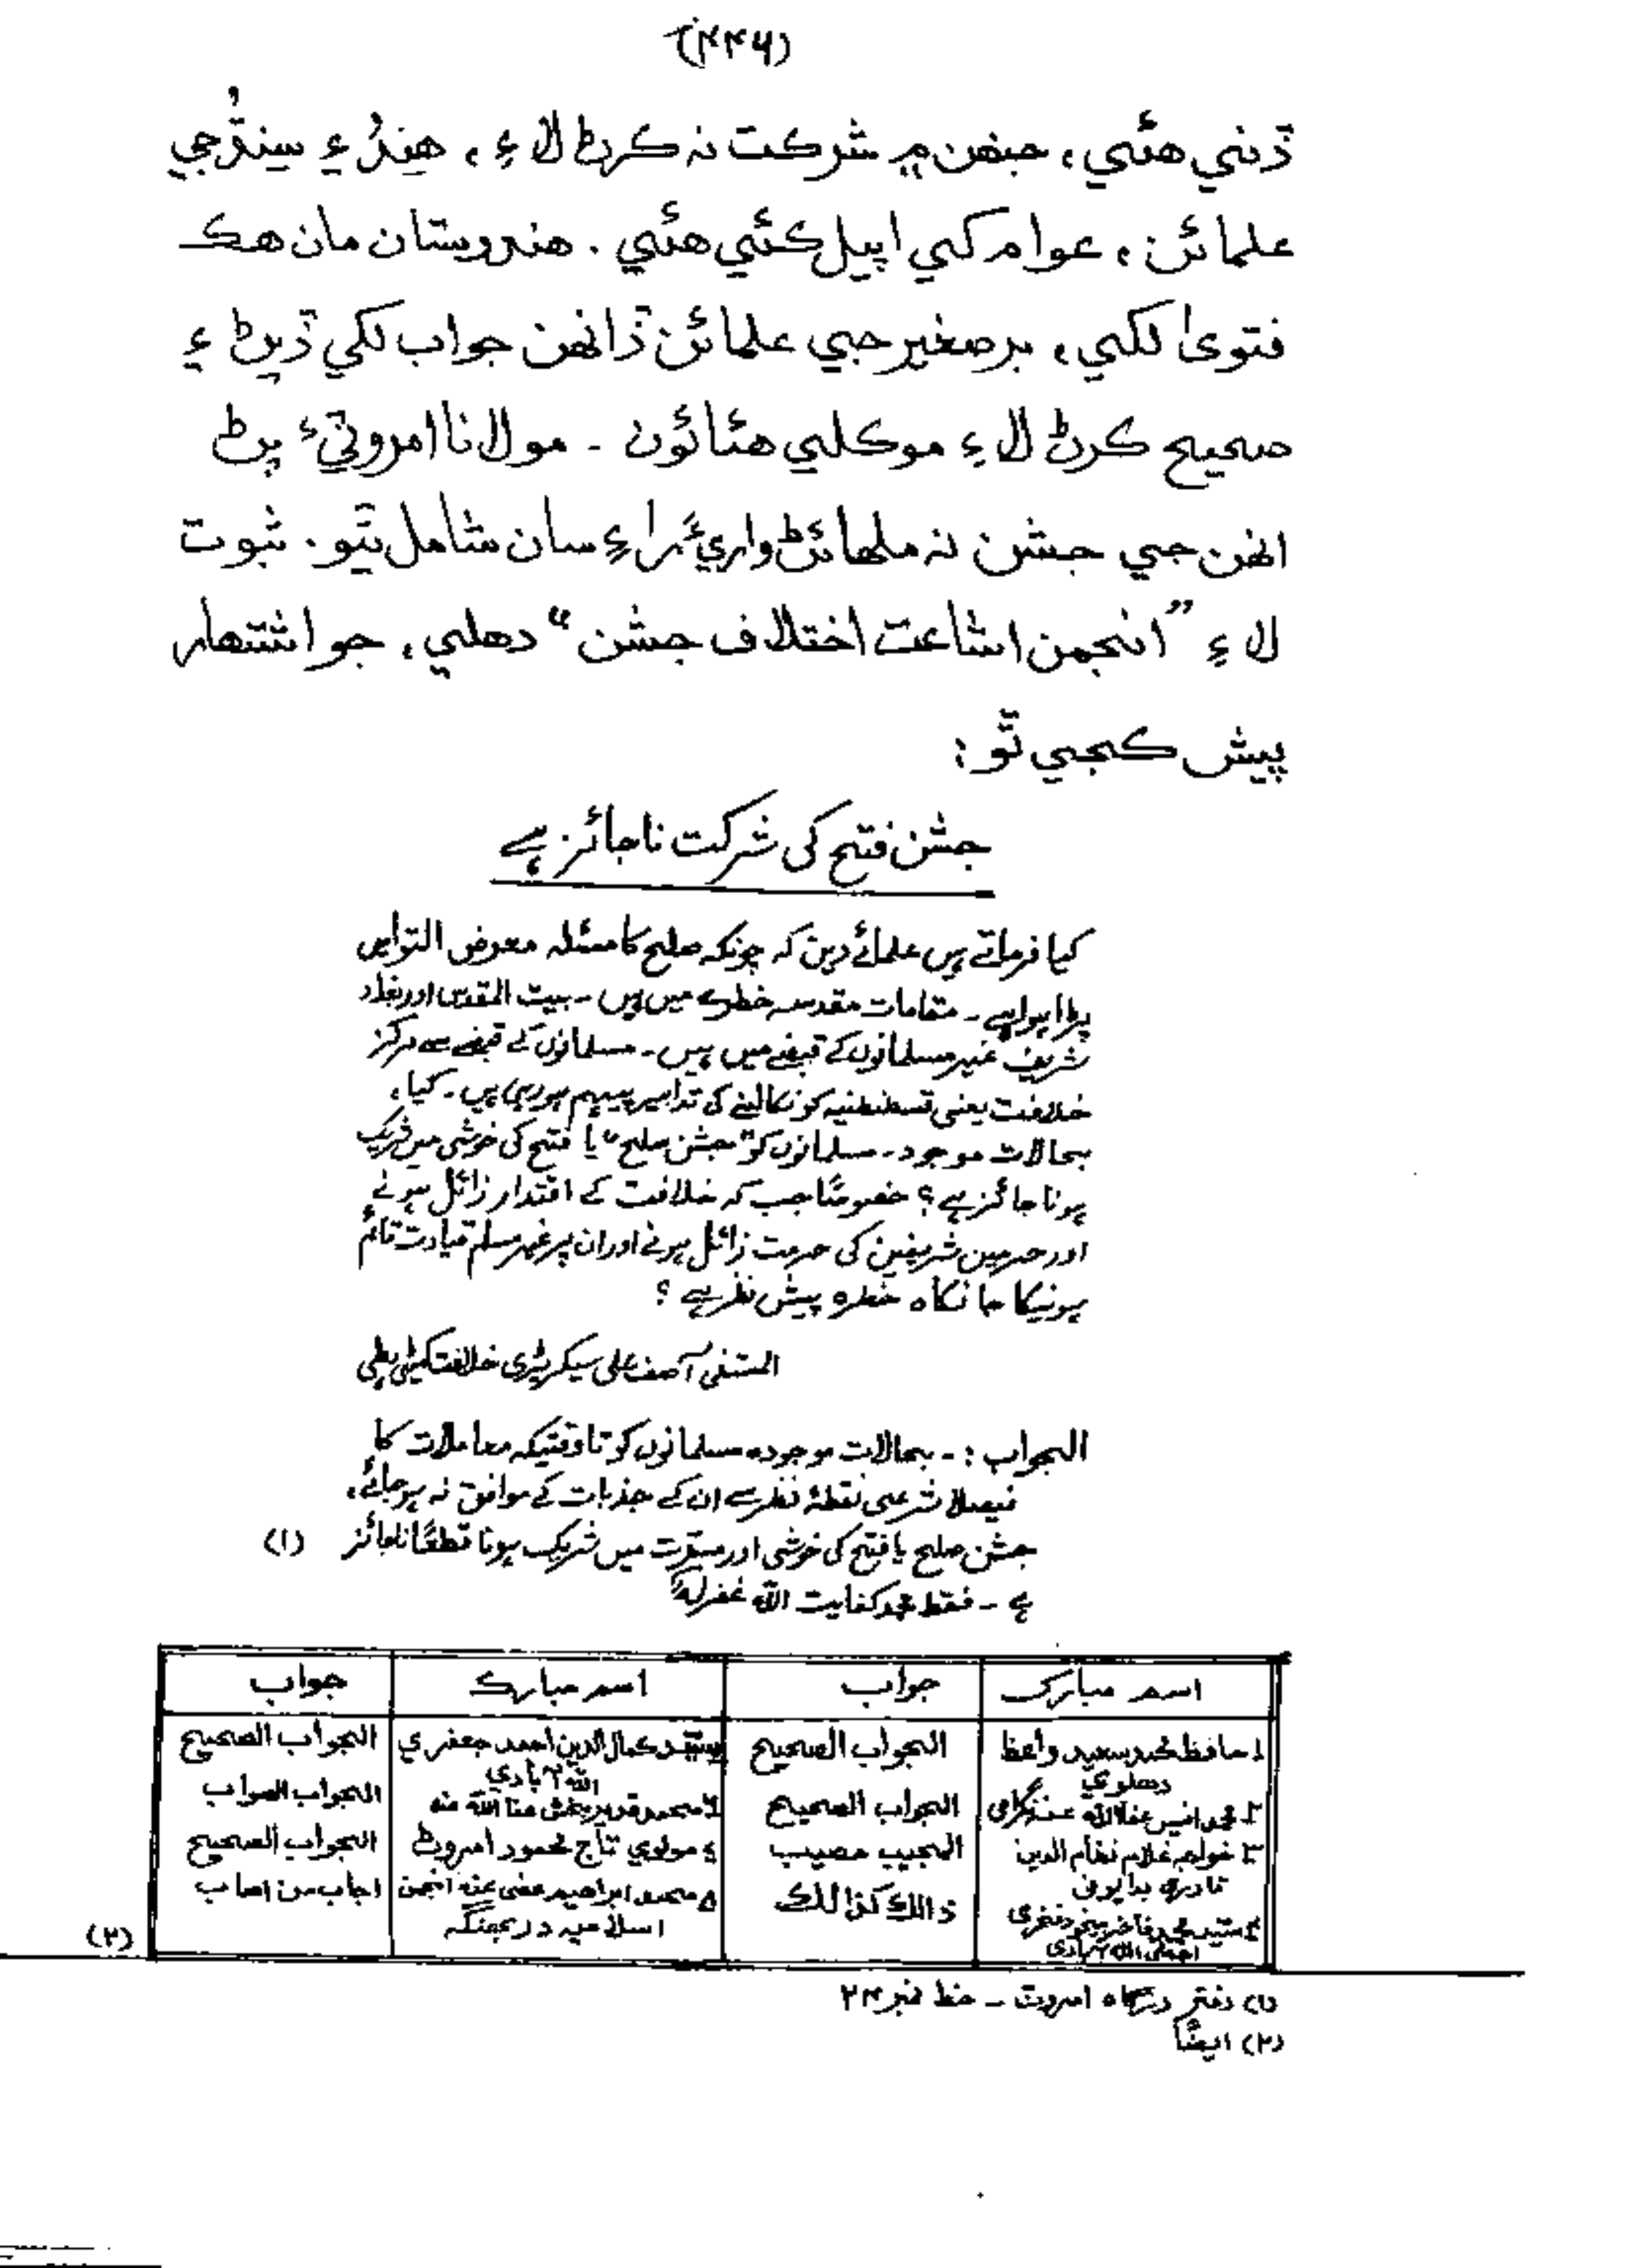 (۲۳۶)
ڏني هئي، جنهن ۾ شرڪت نہ ڪرڻ لاءِ، هِندُ ۽ سِنڌُ جي
علمائن، عوام کي اپيل ڪئي هئي. هندوستان مان هڪ
فتويٰ لکي، برصغير جي علمائن ڏانهن جواب لکي ڏيڻ ۽
صحيح ڪرڻ لاءِ موڪلي هئائون - مولانا امروٽيءَ پڻ
انهن جي جشن نہ ملهائڻ واريءَ راءِ سان شامل ٿيو. ثبوت
لاءِ ”انجمن اشاعت اختلاف جشن“ دهلي، جو اشتهار
پيش ڪجي ٿو:
جشن فتح کی شرکت ناجائز ہے
کیا فرماتے ہیں علمائے دین کہ چونکہ صلح کا مسئلہ معرض التوا میں
پڑا ہوا ہے ۔ مقامات مقدسہ خطرے میں ہیں ۔ بیت المقدس اور بغداد
شریف غیر مسلمانوں کے قبضے میں ہیں ۔ مسلمانوں کے قبضے سے مرکز
خلافت یعنی قسطنطنیہ کو نکالنے کی تدابیر پیہم ہو رہی ہیں ۔ کیا،
بحالات موجود ۔ مسلمانوں کو ”جشن صلح“ یا فتح کی خوشی میں شریک
ہونا جائز ہے؟ خصوصًا جب کہ خلافت کے اقتدار زائل ہونے
اور حرمین شریفین کی حرمت زائل ہونے اور ان پر غیر مسلم قیادت قائم
ہونیکا جانکاہ خطرہ پیش نظر ہے ؟
المستفتی آصف علی سیکریٹری خلافت کمیٹی دہلی
الجواب :۔ بحالات موجودہ مسلمانوں کو تاوقتیکہ معاملات کا
فیصلا شرعی نقطۂ نظر سے ان کے جذبات کے موافق نہ ہو جائے،
جشن صلح یا فتح کی خوشی اور مسرّت میں شریک ہونا قطعًا ناجائز (۱)
ہے ۔ فقط محمد کفایت اللہ غفرلہٗ
اسم مبارک جواب اسم مبارڪ جواب
۱ـ حافظ محمد سعيد واعظ دهلوي الجواب الصحيح سيّد ڪمال الدين احمد جعفري الٰہ آبادي الجواب الصحيح
۲ـ محمد انیس عفا اللہ عنہ نگرامی الجواب الصحيح محمد قدير بخش عفا اللہ عنہ الجواب الصواب
۳ـ خواجہ غلام نظام الدین قادری بدایونی المجيب مصيب ۽ مولوي تاج محمود امروٽ الجواب الصحيح
۴ـ سید محمد فاخر اجملی الہ آبادی ذالك كذالك ۵ محمد ابراهيم عفی عنہ انجمن اسلاميہ دربھنگہ اجاب من اصاب
(۲)
(۱) دفتر درگاه امروٽ ـ خط نمبر ۲۴
(۲) ايضًا